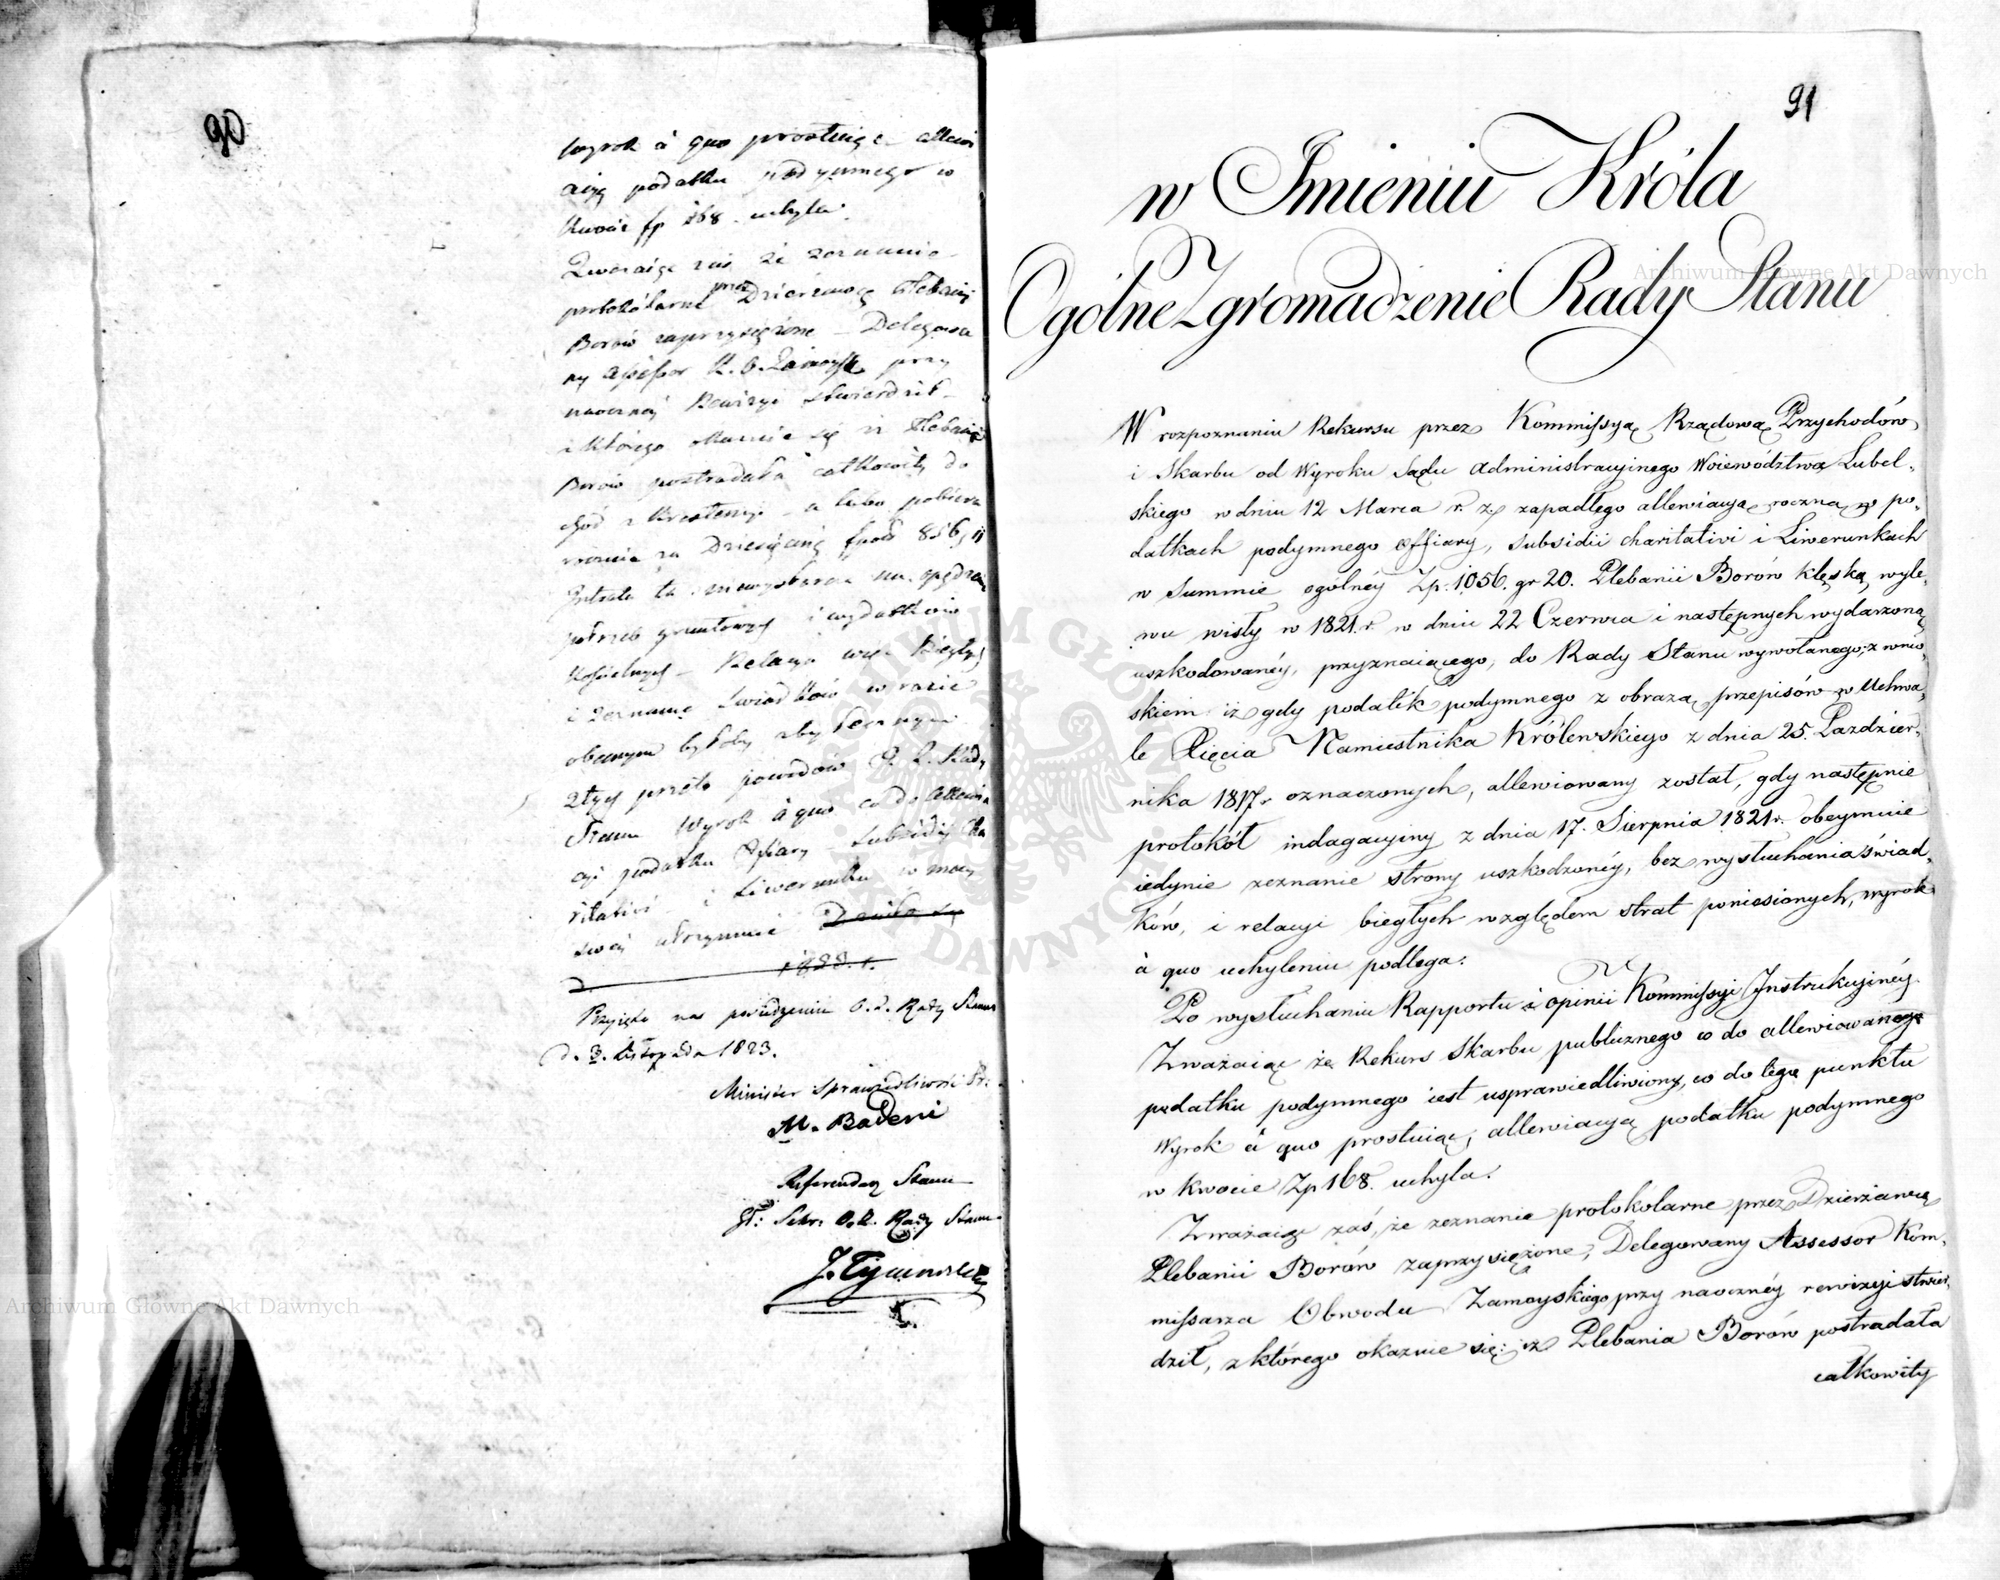 90
wyrok à quo prostuiąc allewi
acyą podatku podymnego w
kwocie fp 168 uchyla.
Zważaiąc zaś że zeznanie
protokólarne przez Dzierżawcę Plebanij
Borów zaprzysiężone – Delegowa
ny Assessor K. O. Zamoysk przy
naoczney Rewizyi stwierdził –
z którego okazuie się iż Plebania
Borów postradała całkowity do
chód z krestencyi – a lubo pobiera
rocznie za Dziesięcinę 856
Intrata ta na opędzenie
potrzeb gruntowych i wydatków
Kościelnych – Relacya więc Biegłych
i zeznanie Świadków w razie
obecnym byłoby zbytecznym
Z tych przeto powodów O. Z. Rady
Stanu Wyrok à quo co do allewia
cyi podatku Ofiary – Subsidij Cha
ritativi – i Liwerunku w mocy
swey utrzymuie Działo się
d. 1823. r.
Przyięto na posiedzeniu O. Z. Rady Stanu
d. 3. Listopada 1823.
Minister Sprawiedliwości
M. Badeni
Referendarz Stanu
Sekr: O. Z. Rady Stanu
J. Tymowski
91
w Imieniu Króla
Ogólne Zgromadzenie Rady Stanu
W rozpoznaniu Rekursu przez Kommissyą Rządową Przychodów
i Skarbu od Wyroku Sądu Administracyinego Woiewództwa Lubel-
skiego w dniu 12 Marca r. z. zapadłego allewiacyą roczną w po-
datkach podymnego offiary, subsidii charitativi i Liwerunkach
w Summie ogólney Zp. 1056. gr 20. Plebanii Borów klęską wyle-
wu wisły w 1821. r. w dniu 22 Czerwca i następnych wydarzoną
uszkodowanéy, przyznaiącego, do Rady Stanu wywołanego; z wnio-
skiem iż gdy podatek podymnego z obrazą przepisów w Uchwa-
le Xięcia Namiestnika Królewskiego z dnia 25. Pazdzier-
nika 1817 r. oznaczonych, allewiowany został, gdy następnie
protokół indagacyiny z dnia 17. Sierpnia 1821 r. obeymuie
iedynie zeznanie strony uszkodzonéy, bez wysłuchania świad-
ków, i relacyi biegłych względem strat poniesionych, wyrok
à quo uchyleniu podlega.
Po wysłuchaniu Rapportu i opinii Kommissyi Instrukcyinéy.
Zważaiąc że Rekurs Skarbu publicznego co do allewiowanego
podatku podymnego iest usprawiedliwiony, co do tego punktu
Wyrok à quo prostuiąc, allewiacyą podatku podymnego
w kwocie Zp 168. uchyla.
Zważaiąc zaś, że zeznanie protokolarne przez Dzierżawcę
Plebanii Borów zaprzysiężone, Delegowany Assessor Kom-
missarza Obwodu Zamoyskiego przy naocznéy rewizyi stwier-
dził, z którego okazuie się: iż Plebania Borów postradała
całkowity
Archiwum Główne Akt Dawnych
Archiwum Główne Akt Dawnych
ARCHIWUM GŁÓWNE AKT DAWNYCH